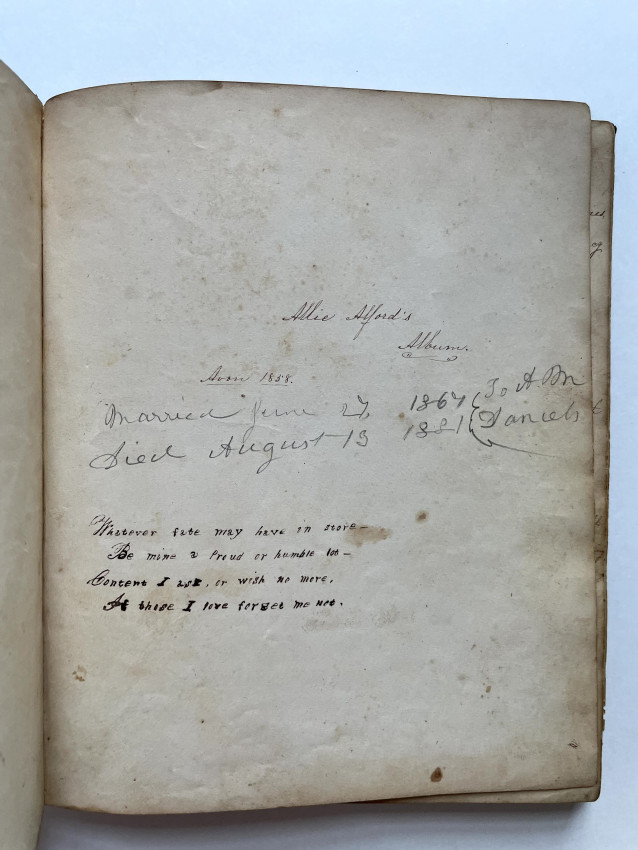 Allie Alford's
Album.
Avon 1858.
Married June 27, 1867 { To A M
Died August 13 1881 { Daniels
Whatever fate may have in store—
Be mine a Proud or humble lot—
Content I ask, or wish no more,
If those I love forget me not.